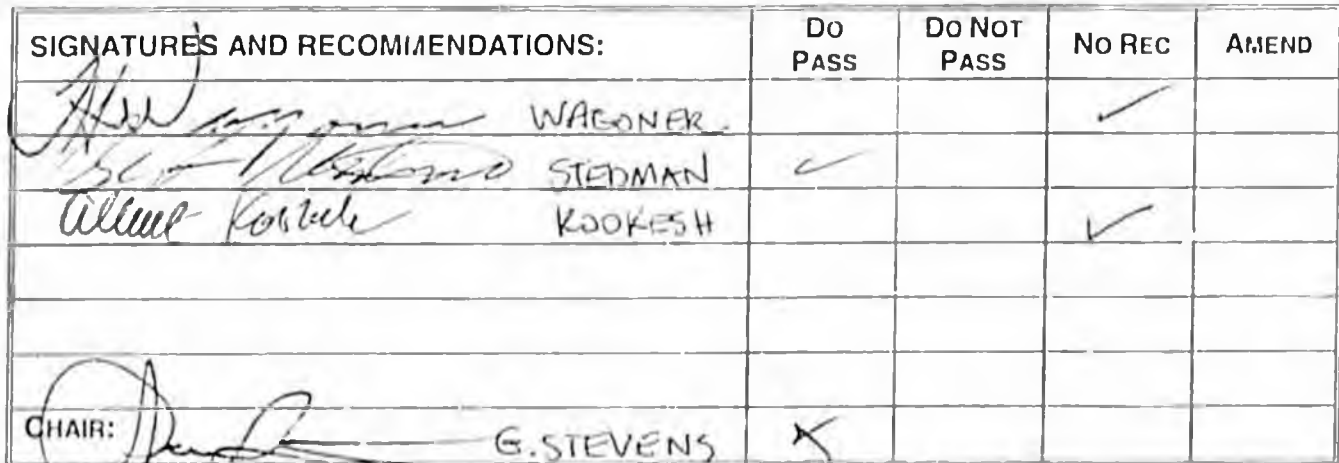 SIGNATURES AND RECOMMENDATIONS: DO PASS DO NOT PASS NO REC AMEND
WAGONER ✓
STEDMAN ✓
KOOKESH ✓
CHAIR: G. STEVENS X